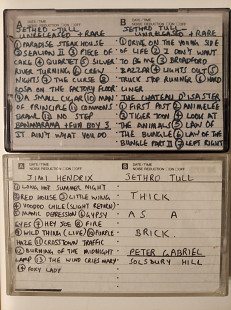 A DATE/TIME
NOISE REDUCTION □ON □OFF
JETHRO TULL
UNRELEASED + RARE
① PARADISE STEAK HOUSE
② SEALION II ③ PIECE OF
CAKE ④ QUARTET ⑤ SILVER
RIVER TURNING ⑥ CREW
NIGHTS ⑦ THE CURSE ⑧
ROSA ON THE FACTORY FLOOR
⑨ A SMALL CIGAR ⑩ MAN
OF PRINCIPLE ⑪ COMMON
BRAWL ⑫ NO STEP
BANANARAMA + FUN BOY 3
IT AIN'T WHAT YOU DO
B DATE/TIME
NOISE REDUCTION □ON □OFF
JETHRO TULL
UNRELEASED + RARE
① DRIVE ON THE YOUNG SIDE
OF LIFE ② I DON'T WANT
TO BE ME ③ BROADFORD
BAZZAR ④ LIGHTS OUT ⑤
TRUCK STOP RUNNING ⑥ HARD
LINER
THE CHATEAU D'ISASTER
① FIRST POST ② ANIMELEE
③ TIGER TOON ④ LOOK AT
THE ANIMALS ⑤ LAW OF
THE BUNGLE ⑥ LAW OF THE
BUNGLE PART II ⑦ LEFT RIGHT
A DATE/TIME
NOISE REDUCTION □ON □OFF
JIMI HENDRIX
① LONG HOT SUMMER NIGHT
② RED HOUSE ③ LITTLE WING
④ VOODOO CHILE (SLIGHT RETURN)
⑤ MANIC DEPRESSION ⑥ GYPSY
EYES ⑦ HEY JOE ⑧ FIRE
⑨ WILD THING (LIVE) ⑩ PURPLE
HAZE ⑪ CROSSTOWN TRAFFIC
⑫ BURNING OF THE MIDNIGHT
LAMP ⑬ THE WIND CRIES MARY
⑭ FOXY LADY
B DATE/TIME
NOISE REDUCTION □ON □OFF
JETHRO TULL
THICK
AS A
BRICK.
PETER GABRIEL
SOLSBURY HILL